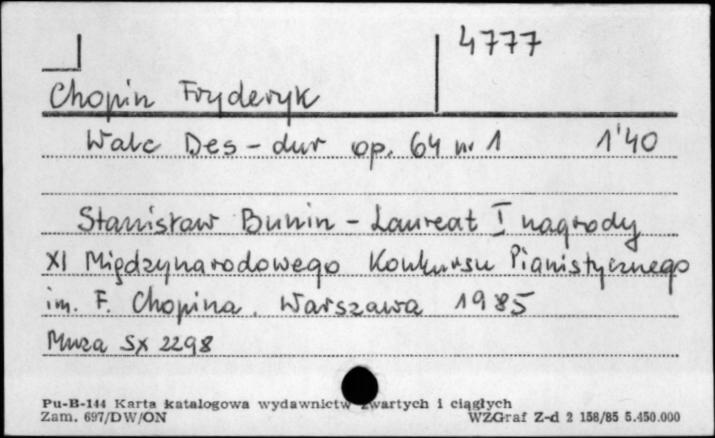 4777
Chopin Fryderyk
Walc Des-dur op. 64 nr 1 1'40
Stanisław Bunin - Laureat I nagrody
XI Międzynarodowego Konkursu Pianistycznego
im. F. Chopina. Warszawa 1985
Muza SX 2298
Pu-B-144 Karta katalogowa wydawnictw zwartych i ciągłych
Zam. 697/DW/ON WZGraf Z-d 2 158/85 5.450.000